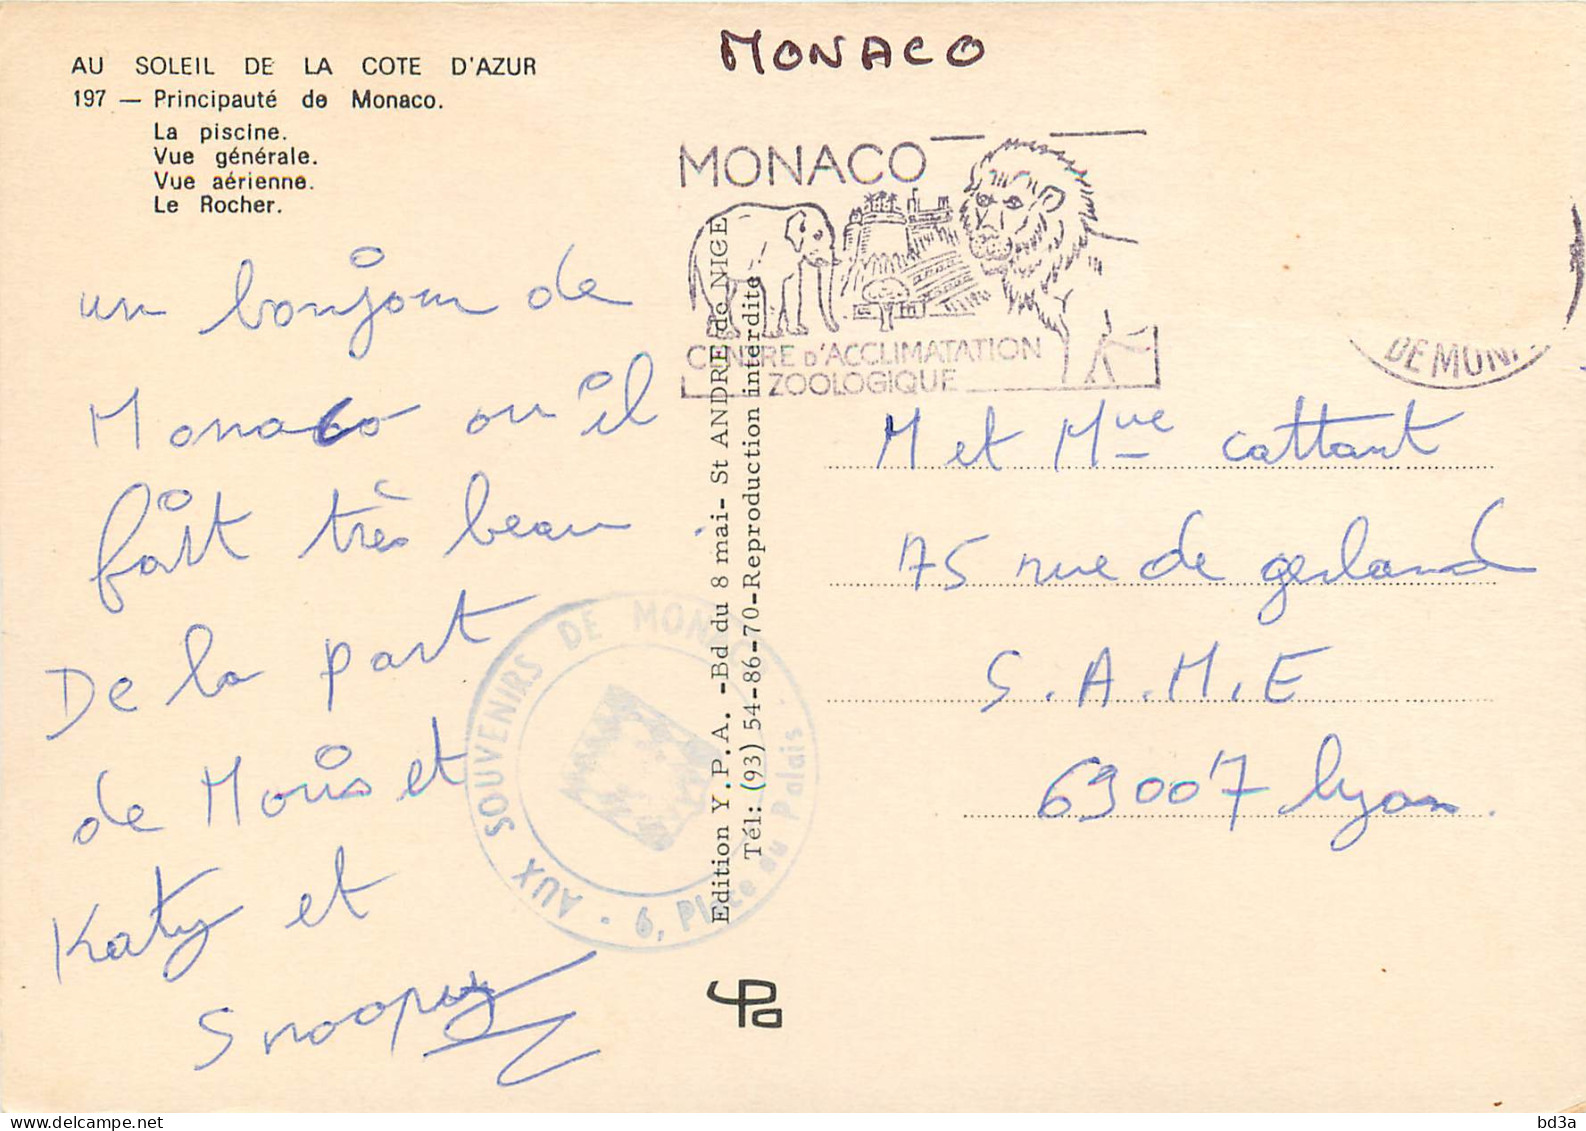 MONACO
AU SOLEIL DE LA COTE D'AZUR
197 — Principauté de Monaco.
La piscine.
Vue générale.
Vue aérienne.
Le Rocher.
MONACO
CENTRE D'ACCLIMATATION
ZOOLOGIQUE
DE MON
un bonjour de
Monaco ou il
fait très beau.
De la part
de Moris et
Katy et
Snoopy
AUX SOUVENIRS DE MONACO
6, Place du Palais
Edition Y.P.A. -Bd du 8 mai- St ANDRE de NICE
Tél: (93) 54-86-70-Reproduction interdite
M et Mme cattant
75 rue de gerland
S.A.M.E
69007 lyon.
delcampe.net
bd3a